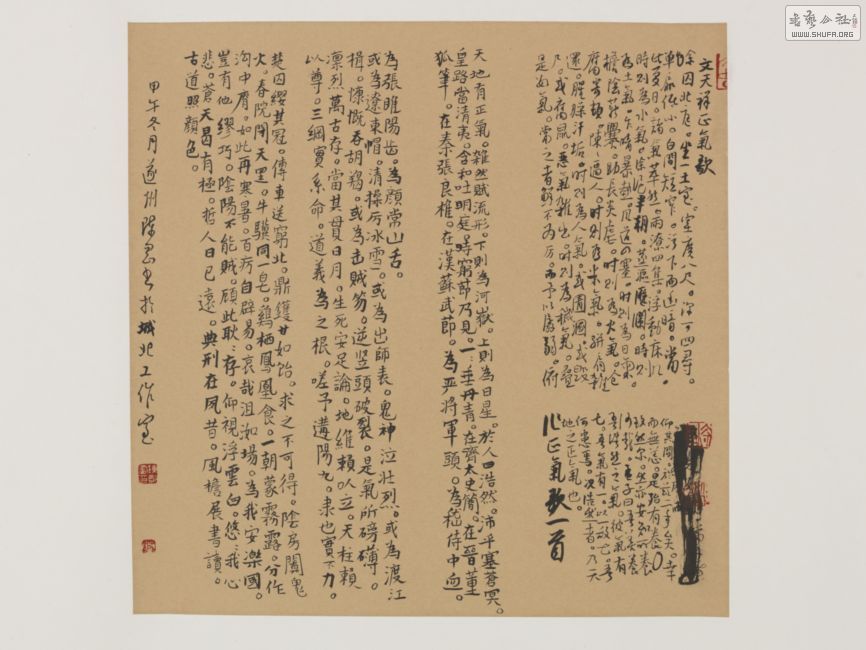 文天祥正氣歌
余囚北庭。坐一土室。室廣八尺。深可四尋。
單扉低小。白間短窄。汙下而幽暗。當
此夏日。諸氣萃然。雨潦四集。浮動床几。
時則為水氣。塗泥半朝。蒸漚歷瀾。時則
為土氣。乍晴暴熱。風道四塞。時則為日氣。
檐陰薪爨。助長炎虐。時則為火氣。倉
腐寄頓。陳〻逼人。時則為米氣。駢肩雜
遝。腥臊汗垢。時則為人氣。或圊溷。或毀
尸。或腐鼠。惡氣雜出。時則為穢氣。疊
是如氣。當之者鮮不為厲。而予以孱弱。俯
仰其間。於茲二年矣。幸
而無恙。是殆有養
致然尔。然亦安知所養
何哉。孟子曰。我善養
吾浩然之氣。彼氣有
七。吾氣有一。以一敵七。吾
何患焉。况浩然者。乃天
地之正氣也。
作正氣歌一首
天地有正氣。雜然賦流形。下則為河嶽。上則為日星。於人曰浩然。沛乎塞蒼冥。
皇路當清夷。含和吐明庭。時窮節乃見。一〻垂丹青。在齊太史簡。在晉董
狐筆。在秦張良椎。在漢蘇武節。為嚴將軍頭。為嵇侍中血。
為張睢陽齒。為顏常山舌。
或為遼東帽。清操厉冰雪。或為出師表。鬼神泣壯烈。或為渡江
楫。慷慨吞胡羯。或為击賊笏。逆竖頭破裂。是氣所磅礴。
凛烈萬古存。當其貫日月。生死安足論。地維賴以立。天柱賴
以尊。三綱實系命。道義為之根。嗟予遘陽九。隶也實不力。
楚囚纓其冠。傳車送窮北。鼎鑊甘如飴。求之不可得。陰房闃鬼
火。春院閉天黑。牛驥同一皂。鷄栖鳳凰食。一朝蒙霧露。分作
沟中瘠。如此再寒暑。百疠自辟易。哀哉沮洳場。為我安樂國。
豈有他繆巧。陰陽不能賊。顧此耿〻存。仰視浮雲白。悠〻我心
悲。蒼天曷有極。哲人日已遠。典刑在夙昔。風檐展書讀。
古道照顏色。
甲午冬月遂州陈忍书於城北工作室
书艺公社
WWW.SHUFA.ORG